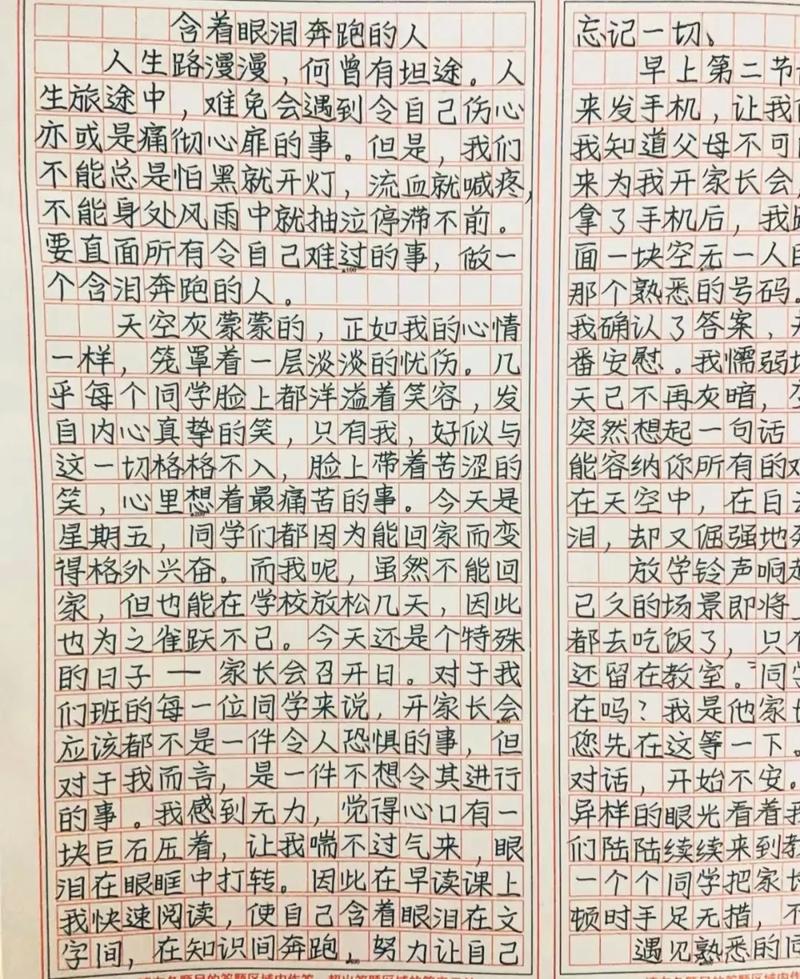 含着眼泪奔跑的人
人生路漫漫，何曾有坦途。人
生旅途中，难免会遇到令自己伤心
亦或是痛彻心扉的事。但是，我们
不能总是怕黑就开灯，流血就喊疼，
不能身处风雨中就抽泣停滞不前。
要直面所有令自己难过的事，做一
个含泪奔跑的人。
天空灰蒙蒙的，正如我的心情
一样，笼罩着一层淡淡的忧伤。几
乎每个同学脸上都洋溢着笑容，发
自内心真挚的笑，只有我，好似与
这一切格格不入，脸上带着苦涩的
笑，心里想着最痛苦的事。今天是
星期五，同学们都因为能回家而变
得格外兴奋。而我呢，虽然不能回
家，但也能在学校放松几天，因此
也为之雀跃不已。今天还是个特殊
的日子——家长会召开日。对于我
们班的每一位同学来说，开家长会
应该都不是一件令人恐惧的事，但
对于我而言，是一件不想令其进行
的事。我感到无力，觉得心口有一
块巨石压着，让我喘不过气来，眼
泪在眼眶中打转。因此在早读课上
我快速阅读，使自己含着眼泪在文
字间，在知识间奔跑。努力让自己
忘记一切。
早上第二节
来发手机，让我
我知道父母不可
来为我开家长会
拿了手机后，我
面一块空无一人
那个熟悉的号码。
我确认了答案，
番安慰。我懦弱
天已不再灰暗，
突然想起一句话
能容纳你所有的
在天空中，在白
泪，却又倔强地
放学铃声响起
已久的场景即将
都去吃饭了，只
还留在教室。同学
在吗？我是他家
您先在这等一下。
对话，开始不安。
异样的眼光看着我
们陆陆续续来到教
一个个同学把家
顿时手足无措，不
遇见熟悉的同